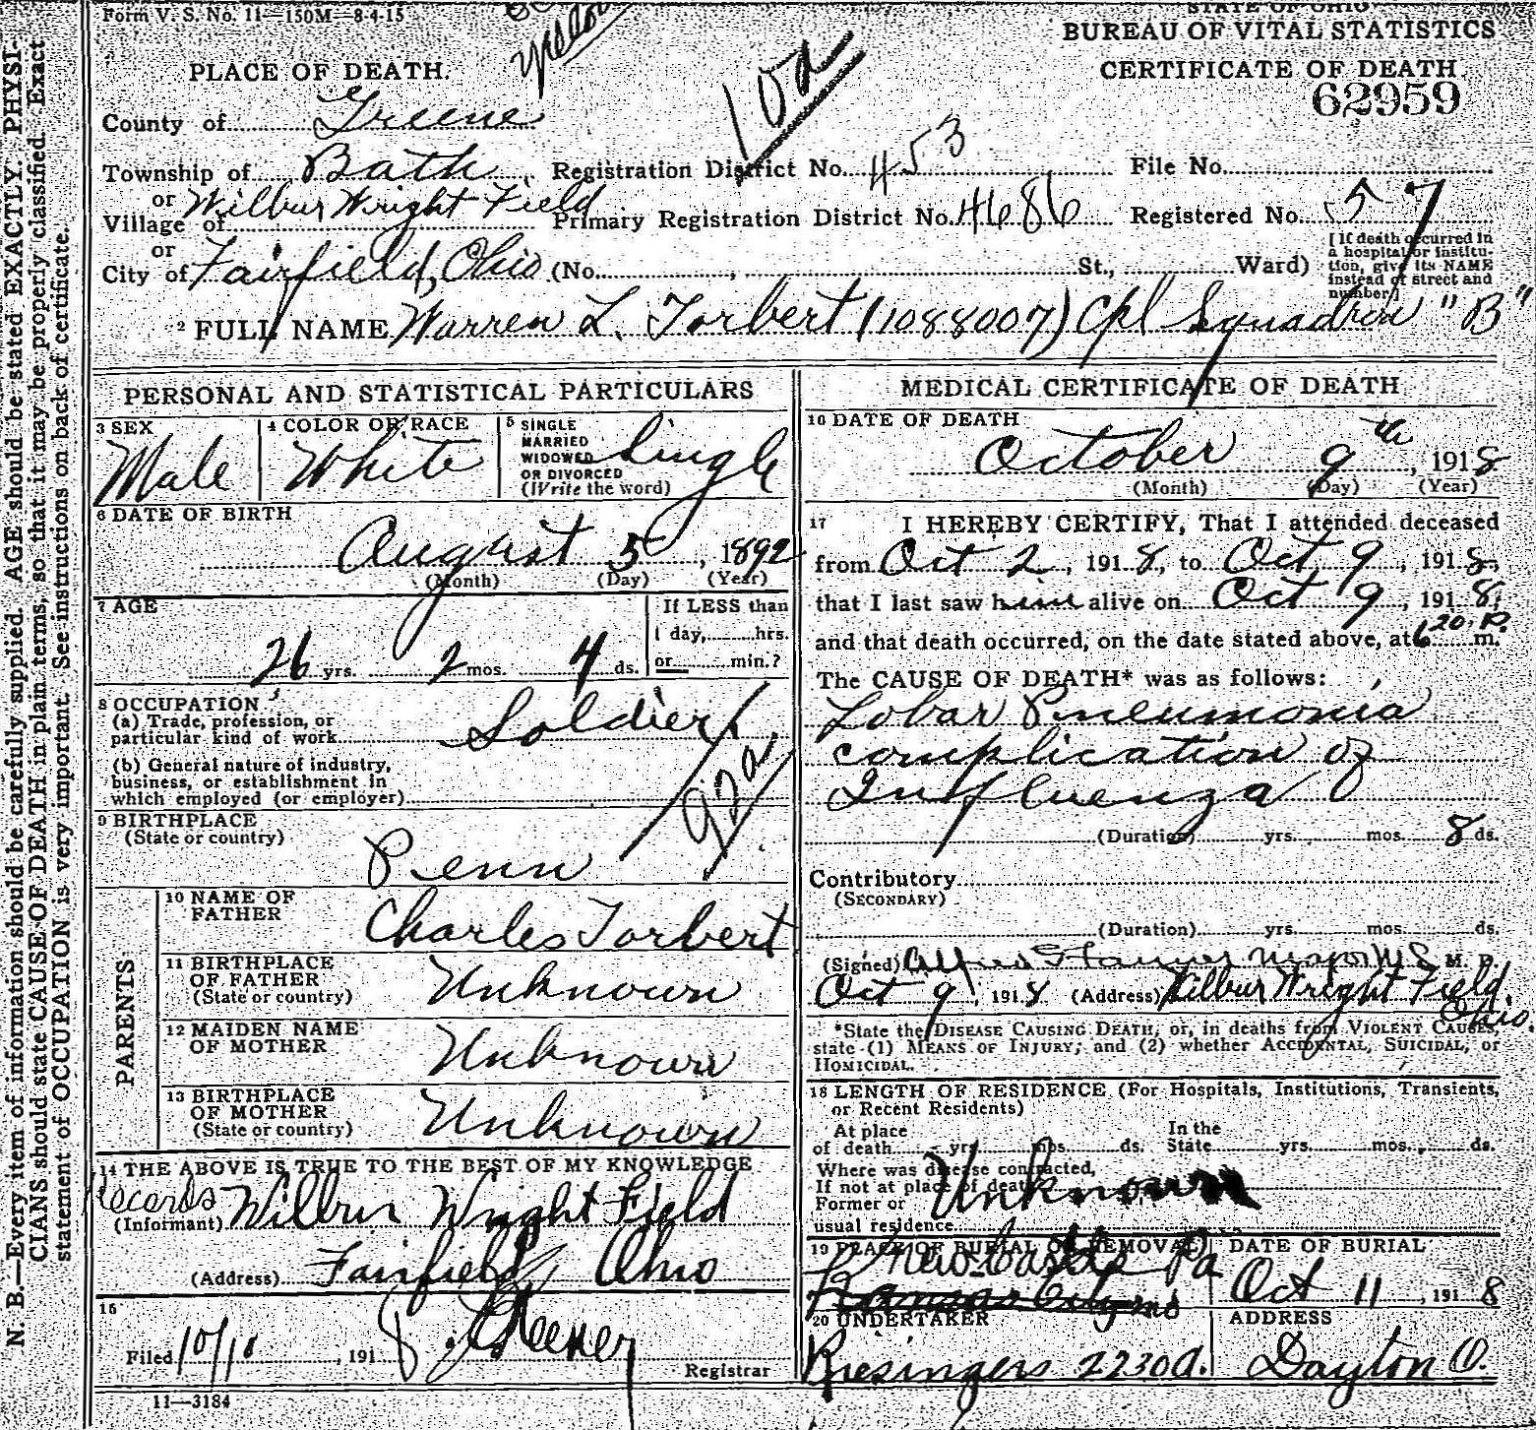 Form V. S. No. 11—150M—8-4-15
STATE OF OHIO
BUREAU OF VITAL STATISTICS
CERTIFICATE OF DEATH
62959
10d
PLACE OF DEATH.
County of Greene
Township of Bath Registration District No. 453 File No.
or
Village of Wilbur Wright Field Primary Registration District No. 4686 Registered No. 57
or
City of Fairfield, Ohio (No. , St., Ward)
[If death occurred in
a hospital or institu-
tion, give its NAME
instead of street and
number.]
2 FULL NAME Warren L. Torbert (1088007) Cpl Squadron "B"
PERSONAL AND STATISTICAL PARTICULARS
3 SEX
Male
4 COLOR OR RACE
White
5 SINGLE
MARRIED
WIDOWED
OR DIVORCED
(Write the word)
Single
6 DATE OF BIRTH
August 5, 1892
(Month) (Day) (Year)
7 AGE
26 yrs. 2 mos. 4 ds.
If LESS than
1 day, hrs.
or min.?
8 OCCUPATION
(a) Trade, profession, or
particular kind of work Soldier
(b) General nature of industry,
business, or establishment in
which employed (or employer)
92a
9 BIRTHPLACE
(State or country)
Penn
PARENTS
10 NAME OF
FATHER
Charles Torbert
11 BIRTHPLACE
OF FATHER
(State or country)
Unknown
12 MAIDEN NAME
OF MOTHER
Unknown
13 BIRTHPLACE
OF MOTHER
(State or country)
Unknown
14 THE ABOVE IS TRUE TO THE BEST OF MY KNOWLEDGE
Records
(Informant) Wilbur Wright Field
(Address) Fairfield, Ohio
15
Filed 10/10, 1918
Registrar
11—3184
MEDICAL CERTIFICATE OF DEATH
16 DATE OF DEATH
October 9th, 1918
(Month) (Day) (Year)
17 I HEREBY CERTIFY, That I attended deceased
from Oct 2, 1918, to Oct 9, 1918,
that I last saw him alive on Oct 9, 1918,
and that death occurred, on the date stated above, at 6 20 P. m.
The CAUSE OF DEATH* was as follows:
Lobar Pneumonia
complication of
Influenza
(Duration) yrs. mos. 8 ds.
Contributory
(SECONDARY)
(Duration) yrs. mos. ds.
(Signed) Alfred Major M. D.
Oct 9, 1918 (Address) Wilbur Wright Field,
Ohio.
*State the DISEASE CAUSING DEATH, or, in deaths from VIOLENT CAUSES,
state (1) MEANS OF INJURY; and (2) whether ACCIDENTAL, SUICIDAL, or
HOMICIDAL.
18 LENGTH OF RESIDENCE (For Hospitals, Institutions, Transients,
or Recent Residents)
At place
of death yrs. mos. ds.
In the
State yrs. mos. ds.
Where was disease contracted,
If not at place of death?
Unknown
Former or
usual residence
19 PLACE OF BURIAL OR REMOVAL
New Castle Pa
Kansas City mo
DATE OF BURIAL
Oct 11, 1918
20 UNDERTAKER
ADDRESS
Dayton O.
N. B.—Every item of information should be carefully supplied. AGE should be stated EXACTLY. PHYSI-
CIANS should state CAUSE OF DEATH in plain terms, so that it may be properly classified. Exact
statement of OCCUPATION is very important. See instructions on back of certificate.